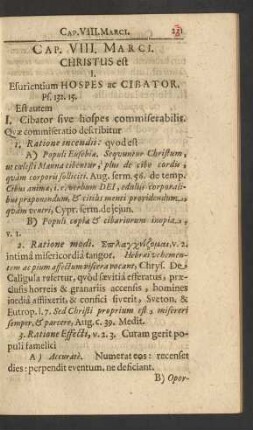 CAP. VIII. MARCI. 231
CAP. VIII. MARCI.
CHRISTUS est
I.
Esurientium HOSPES ac CIBATOR.
Ps. 132. 15.
Est autem
I. Cibator sive hospes commiserabilis.
Quæ commiseratio describitur
1. Ratione incendii: quod est
A) Populi Eusebia. Sequuntur Christum,
ut cœlesti Manna cibentur, plus de cibo cordis
quàm corporis solliciti. Aug. serm. 56. de temp.
Cibus anima, i. e. verbum DEI, edulus corporali-
bus præponendum, & citius menti providendum,
quàm ventri, Cypr. serm. de jejun.
B) Populi copia & cibariorum inopia,
v. 1.
2. Ratione modi. Σπλαγχνίζομαι, v. 2.
intima misericordiâ tangor. Hebræi vehemen-
tem ac pium affectum viscera vocant, Chrys. De
Caligula refertur, quòd sævitiâ efferatus, præ-
clusis horreis & granariis accensis, homines
inediâ afflixerit, & confici siverit, Sveton. &
Eutrop. l. 7. Sed Christi proprium est, misereri
semper, & parcere, Aug. c. 39. Medit.
3. Ratione Effecti, v. 2. 3. Curam gerit po-
puli famelici
A) Accuratè. Numerat eos: recenset
dies: perpendit eventum, ne deficiant.
B) Opor-